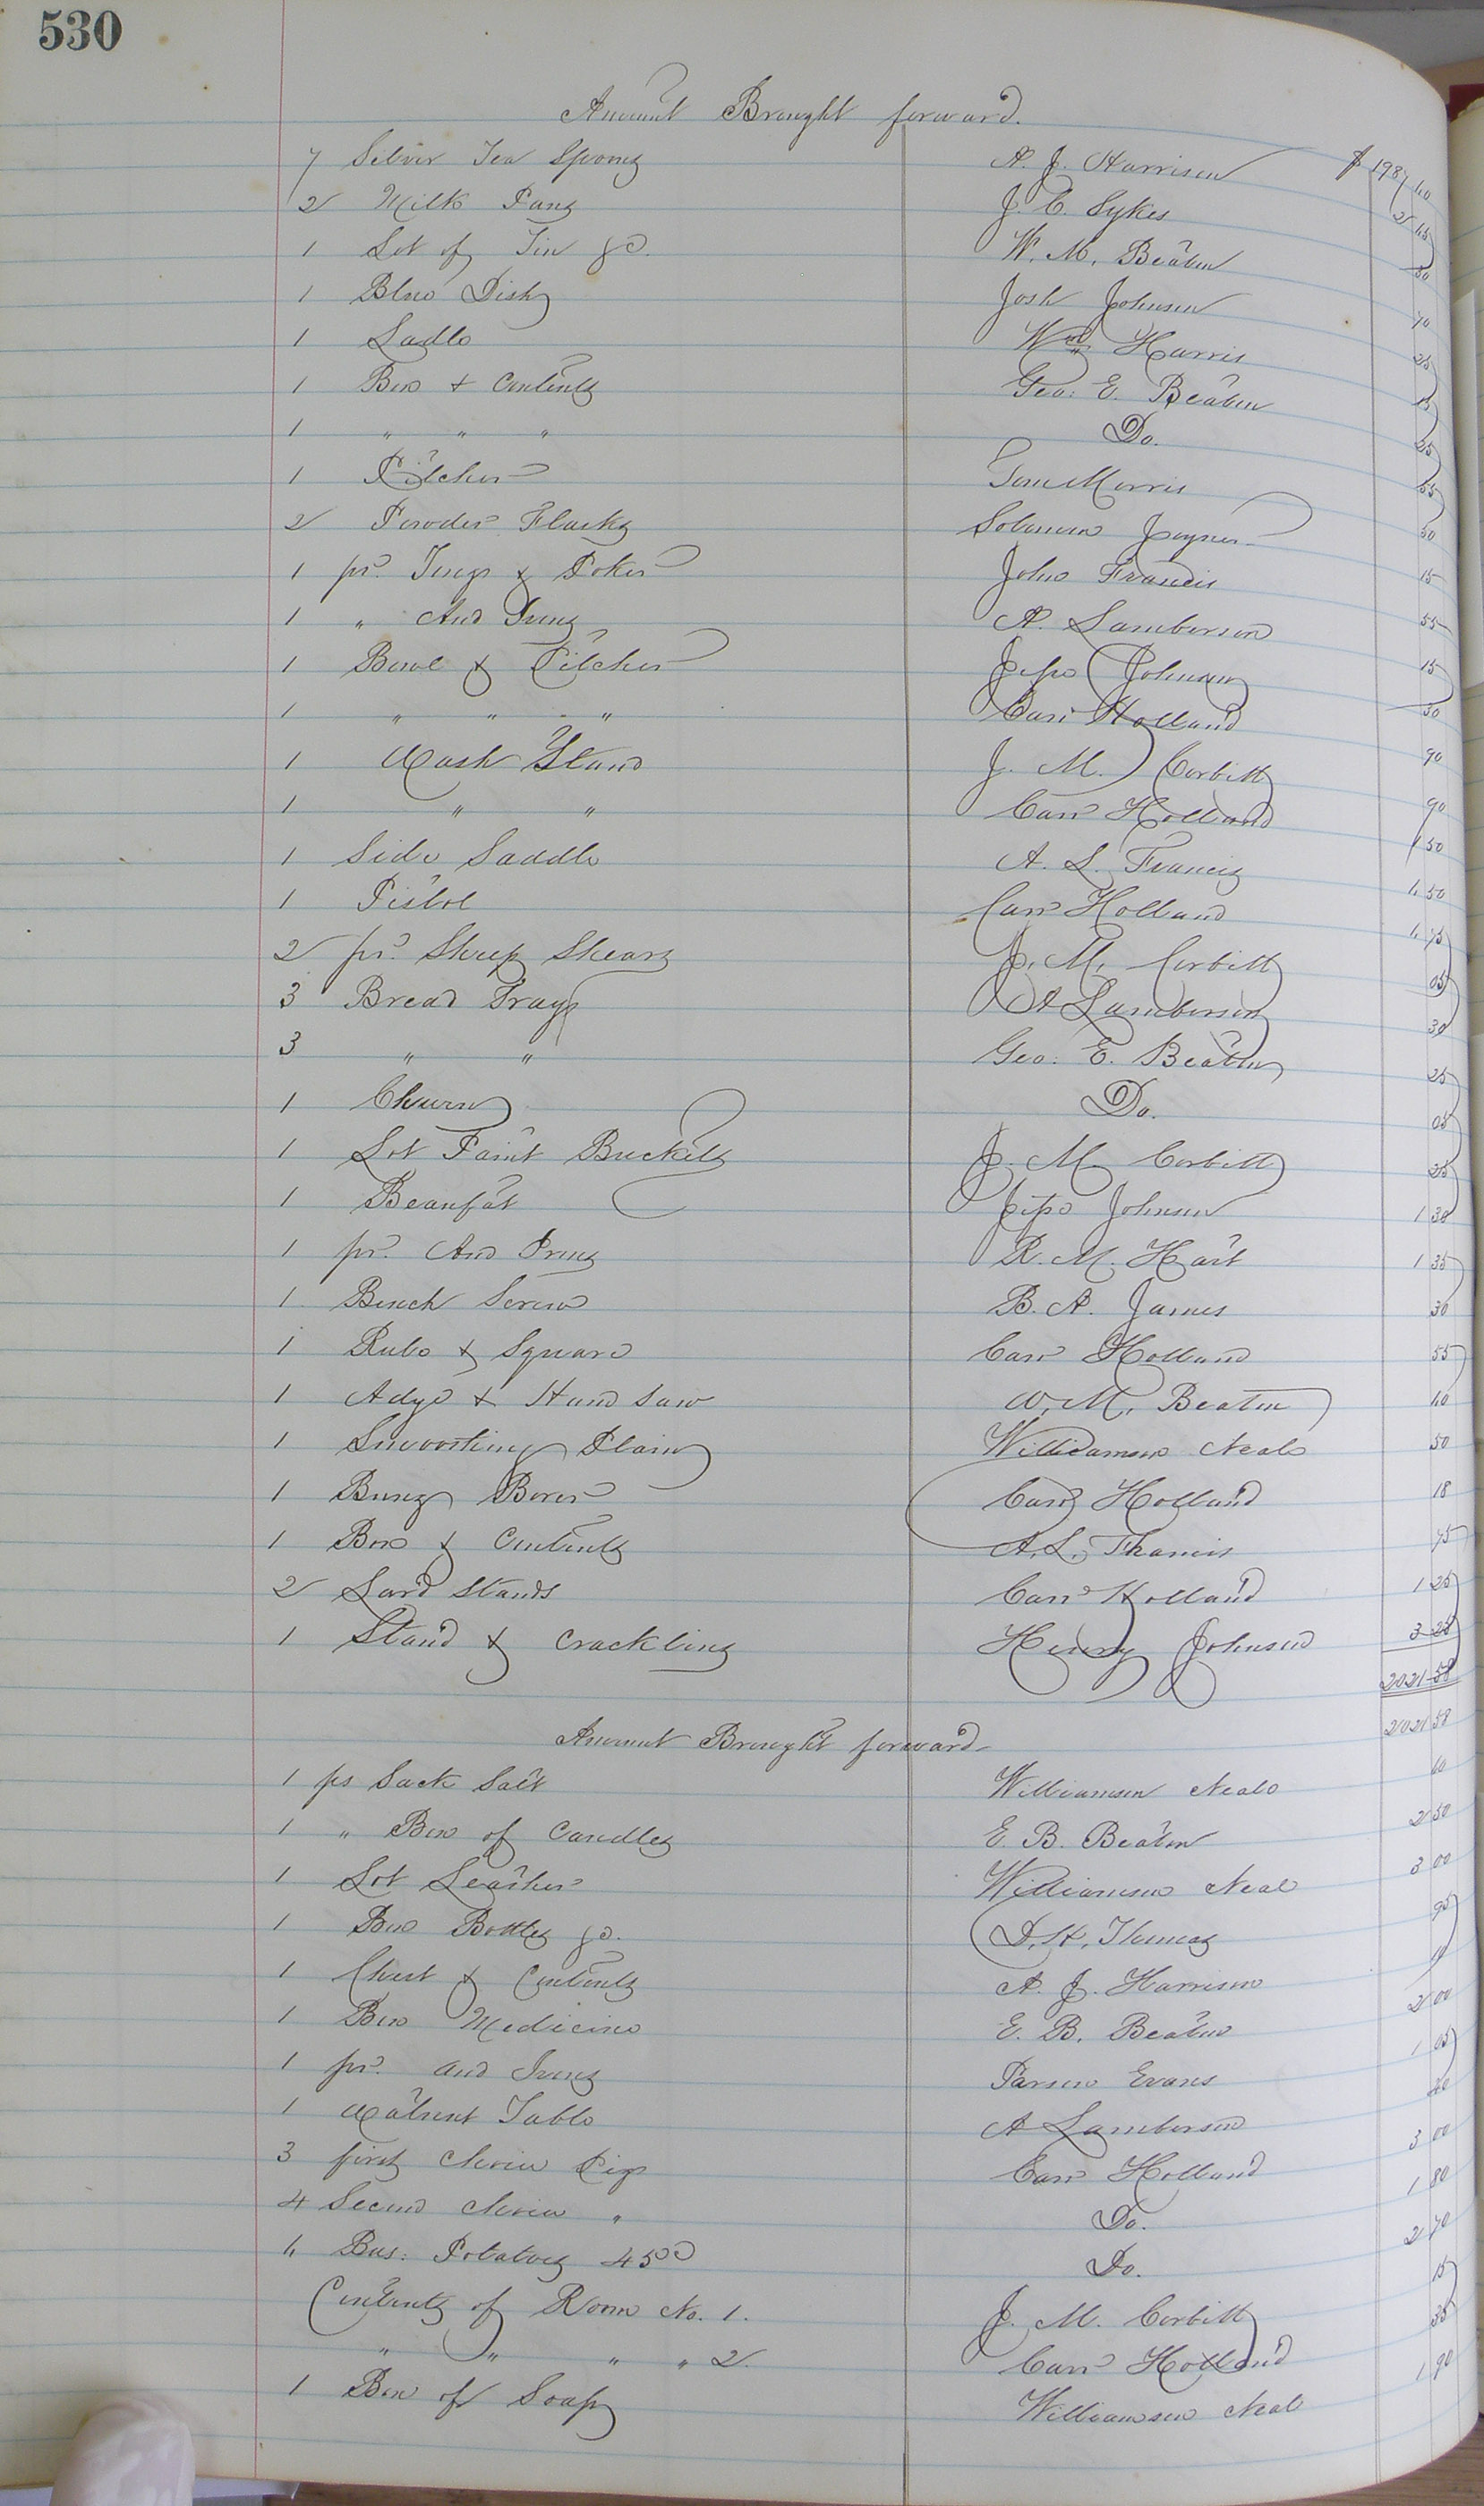 530
Amount Brought forward.
7 Silver Tea Spoons A. J. Harrison $ 1987 40
2 Milk Pans J. C. Sykes 2 45
1 Lot of Tin &c. W. M. Beaton 50
1 Blue Dish Josh Johnson 70
1 Ladle Wm Harris 25
1 Box & Contents Geo. E. Beaton
1 " " " Do. 25
1 Pitcher Tom Morris 55
2 Powder Flasks Solomon Joyner 50
1 pr. Tongs & Poker John Francis 15
1 " And Irons A. Lamberson 55
1 Bowl & Pitcher Jesse Johnson 15
1 " " " Carr Holland 30
1 Wash Stand J. M. Corbitt 90
1 " " Carr Holland 90
1 Side Saddle A. L. Francis 1 50
1 Pistol Carr Holland 1. 50
2 pr. Sheep Shears J. M. Corbitt
3 Bread Trays A Lamberson 05
3 " " Geo. E. Beaton 30
1 Churn Do. 25
1 Lot Paint Buckets J. M. Corbitt 05
1 Beaufat Jesse Johnson 25
1 pr. And Irons R. M. Hart 1 30
1 Bench Screw B. A. James 1 35
1 Rule & Square Carr Holland 30
1 Adge & Hand Saw W. M. Beaton 55
1 Smoothing Plain Williamson Neale 40
1 Bung Borer Carr Holland 50
1 Box & Contents A. L. Francis 18
2 Lard Stands Carr Holland 75
1 Stand & Crackling Henry Johnson 1 25
3 25
2021 58
Amount Brought forward 2021 58
1 ps Sack Salt Williamson Neale 60
1 " Box of Candles E. B. Beaton 2 50
1 Lot Leather Williamson Neal 3 00
1 Box Bottles &c. D. H. Thomas 95
1 Chest & Contents A. J. Harrison
1 Box Medicine E. B. Beaton 2 00
1 pr. and Irons Parson Evans 1 05
1 Walnut Table A Lamberson 40
3 first choice Pigs Carr Holland 3 00
4 Second choice " Do. 1 80
6 Bus: Potatoes 45c Do. 2 70
Contents of Room No. 1. J. M. Corbitt 15
" " " " 2. Carr Holland 35
1 Box of Soap Williamson Neal 1 90